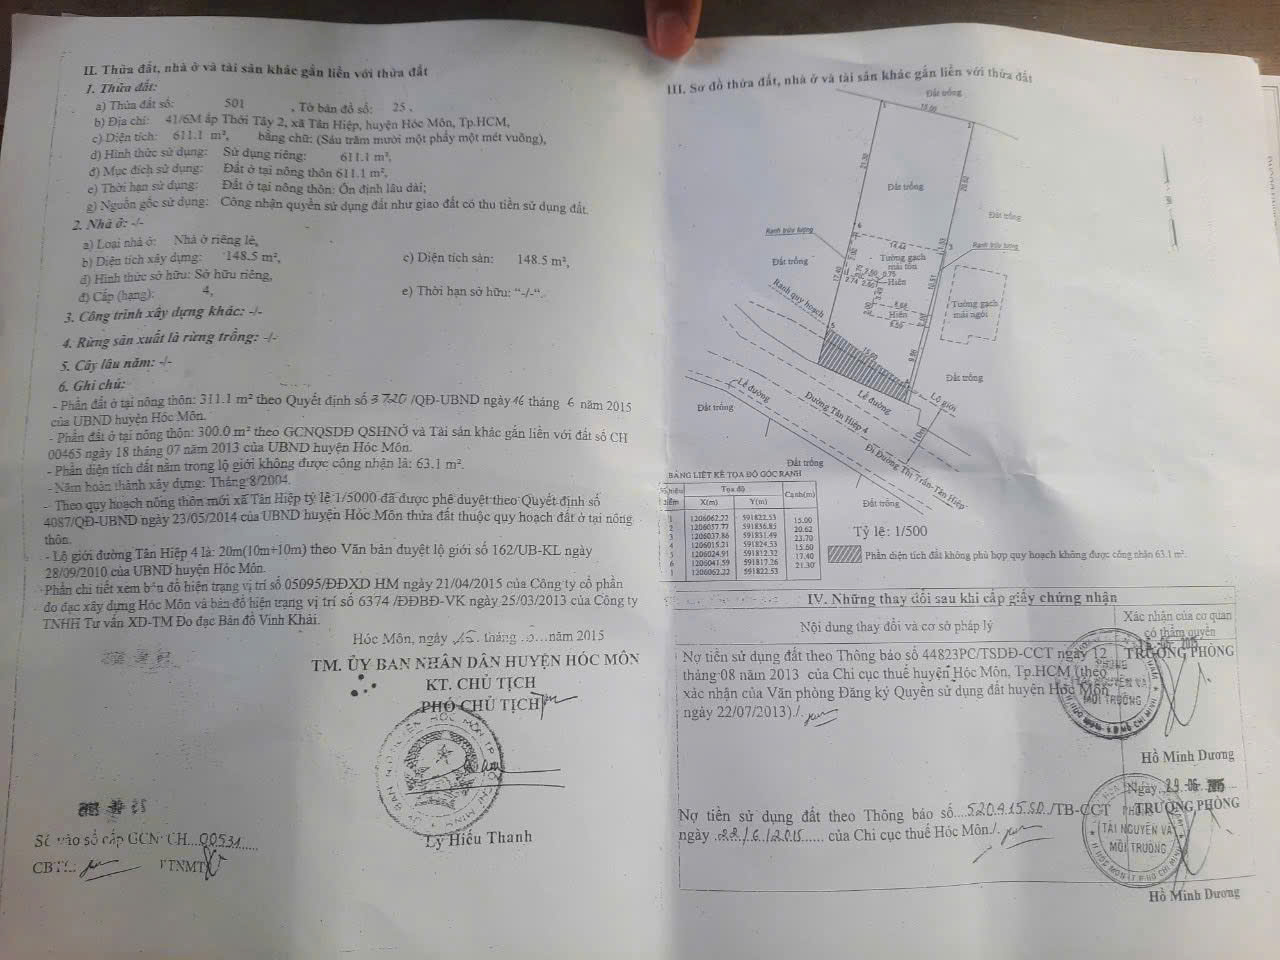 II. Thửa đất, nhà ở và tài sản khác gắn liền với thửa đất
1. Thửa đất:
a) Thửa đất số: 501 , Tờ bản đồ số: 25 .
b) Địa chỉ: 41/6M ấp Thới Tây 2, xã Tân Hiệp, huyện Hóc Môn, Tp.HCM,
c) Diện tích: 611.1 m², bằng chữ: (Sáu trăm mười một phẩy một mét vuông),
d) Hình thức sử dụng: Sử dụng riêng: 611.1 m²,
đ) Mục đích sử dụng: Đất ở tại nông thôn 611.1 m²,
e) Thời hạn sử dụng: Đất ở tại nông thôn: Ổn định lâu dài;
g) Nguồn gốc sử dụng: Công nhận quyền sử dụng đất như giao đất có thu tiền sử dụng đất.
2. Nhà ở: -/-
a) Loại nhà ở: Nhà ở riêng lẻ,
b) Diện tích xây dựng: 148.5 m², c) Diện tích sàn: 148.5 m²,
d) Hình thức sở hữu: Sở hữu riêng,
đ) Cấp (hạng): 4, e) Thời hạn sở hữu: “-/-“.
3. Công trình xây dựng khác: -/-
4. Rừng sản xuất là rừng trồng: -/-
5. Cây lâu năm: -/-
6. Ghi chú:
- Phần đất ở tại nông thôn: 311.1 m² theo Quyết định số 3720/QĐ-UBND ngày 16 tháng 6 năm 2015
của UBND huyện Hóc Môn.
- Phần đất ở tại nông thôn: 300.0 m² theo GCNQSDĐ QSHNỞ và Tài sản khác gắn liền với đất số CH
00465 ngày 18 tháng 07 năm 2013 của UBND huyện Hóc Môn.
- Phần diện tích đất nằm trong lộ giới không được công nhận là: 63.1 m².
- Năm hoàn thành xây dựng: Tháng 8/2004.
- Theo quy hoạch nông thôn mới xã Tân Hiệp tỷ lệ 1/5000 đã được phê duyệt theo Quyết định số
4087/QĐ-UBND ngày 23/05/2014 của UBND huyện Hóc Môn thửa đất thuộc quy hoạch đất ở tại nông
thôn.
- Lộ giới đường Tân Hiệp 4 là: 20m(10m+10m) theo Văn bản duyệt lộ giới số 162/UB-KL ngày
28/09/2010 của UBND huyện Hóc Môn.
Phần chi tiết xem bản đồ hiện trạng vị trí số 05095/ĐĐXD HM ngày 21/04/2015 của Công ty cổ phần
đo đạc xây dựng Hóc Môn và bản đồ hiện trạng vị trí số 6374 /ĐĐBĐ-VK ngày 25/03/2013 của Công ty
TNHH Tư vấn XD-TM Đo đạc Bản đồ Vinh Khải.
Hóc Môn, ngày 15 tháng năm 2015
TM. ỦY BAN NHÂN DÂN HUYỆN HÓC MÔN
KT. CHỦ TỊCH
PHÓ CHỦ TỊCH
Lý Hiếu Thanh
Số vào sổ cấp GCN: CH...00531......
CBTL: PTNMT
III. Sơ đồ thửa đất, nhà ở và tài sản khác gắn liền với thửa đất
Đất trống
15.00
21.30
20.62
Đất trống
Đất trống
Ranh trừu tượng
Ranh trừu tượng
14.44
Tường gạch
mái tôn
Đất trống
17.40
Hiên
Ranh quy hoạch
Hiên
Tường gạch
mái ngói
15.60
9.86
Đất trống
Lộ giới
Lề đường
Đường Tân Hiệp 4
Lề đường
Đất trống
Đi Đường Thị Trấn-Tân Hiệp
Đất trống
Đất trống
BẢNG LIỆT KÊ TỌA ĐỘ GÓC RANH
Số hiệu điểm Tọa độ Cạnh(m)
X(m) Y(m)
1 1206062.22 591822.53
15.00
2 1206057.77 591836.85
20.62
3 1206037.86 591831.49
23.70
4 1206015.21 591824.53
15.60
5 1206024.91 591812.32
17.40
6 1206041.59 591817.26
21.30
1 1206062.22 591822.53
Tỷ lệ: 1/500
Phần diện tích đất không phù hợp quy hoạch không được công nhận 63.1 m².
IV. Những thay đổi sau khi cấp giấy chứng nhận
Nội dung thay đổi và cơ sở pháp lý
Xác nhận của cơ quan
có thẩm quyền
Nợ tiền sử dụng đất theo Thông báo số 44823PC/TSDĐ-CCT ngày 12
tháng 08 năm 2013 của Chi cục thuế huyện Hóc Môn, Tp.HCM (theo
xác nhận của Văn phòng Đăng ký Quyền sử dụng đất huyện Hóc Môn
ngày 22/07/2013)./.
TRƯỞNG PHÒNG
PHÒNG
TÀI NGUYÊN VÀ
MÔI TRƯỜNG
Hồ Minh Dương
Ngày..29 -06- 2015
Nợ tiền sử dụng đất theo Thông báo số....520415.SD./TB-CCT
ngày .22/6/2015...... của Chi cục thuế Hóc Môn./.
TRƯỞNG PHÒNG
PHÒNG
TÀI NGUYÊN VÀ
MÔI TRƯỜNG
Hồ Minh Dương